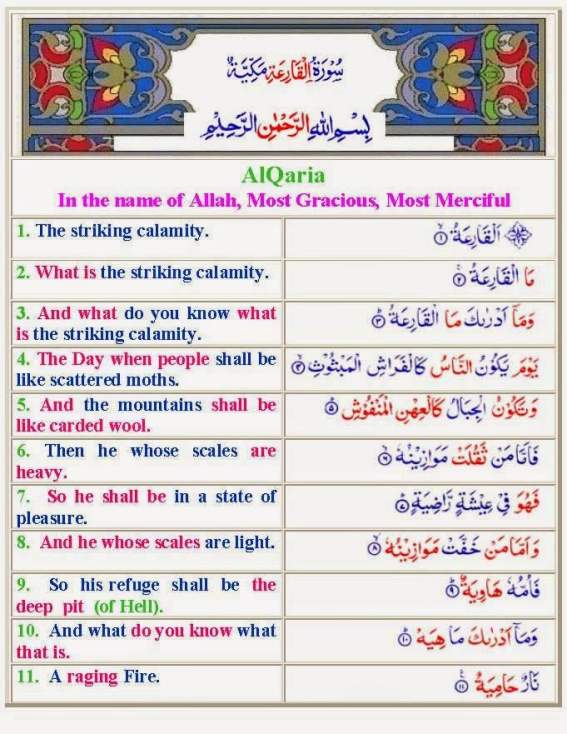 سُوْرَةُ الْقَارِعَةِ مَكِّيَّةٌ
بِسْمِ اللهِ الرَّحْمٰنِ الرَّحِيْمِ
AlQaria
In the name of Allah, Most Gracious, Most Merciful
1. The striking calamity.
اَلْقَارِعَةُ ۙ﴿۱﴾
2. What is the striking calamity.
مَا الْقَارِعَةُ ۚ﴿۲﴾
3. And what do you know what
is the striking calamity.
وَمَاۤ اَدْرٰىكَ مَا الْقَارِعَةُ ؕ﴿۳﴾
4. The Day when people shall be
like scattered moths.
يَوْمَ يَكُوْنُ النَّاسُ كَالْفَرَاشِ الْمَبْثُوْثِ ۙ﴿۴﴾
5. And the mountains shall be
like carded wool.
وَتَكُوْنُ الْجِبَالُ كَالْعِهْنِ الْمَنْفُوْشِ ؕ﴿۵﴾
6. Then he whose scales are
heavy.
فَاَمَّا مَنْ ثَقُلَتْ مَوَازِيْنُهٗ ۙ﴿۶﴾
7. So he shall be in a state of
pleasure.
فَهُوَ فِيْ عِيْشَةٍ رَّاضِيَةٍ ؕ﴿۷﴾
8. And he whose scales are light.
وَاَمَّا مَنْ خَفَّتْ مَوَازِيْنُهٗ ۙ﴿۸﴾
9. So his refuge shall be the
deep pit (of Hell).
فَاُمُّهٗ هَاوِيَةٌ ؕ﴿۹﴾
10. And what do you know what
that is.
وَمَاۤ اَدْرٰىكَ مَا هِيَهْ ؕ﴿۱۰﴾
11. A raging Fire.
نَارٌ حَامِيَةٌ ﴿۱۱﴾